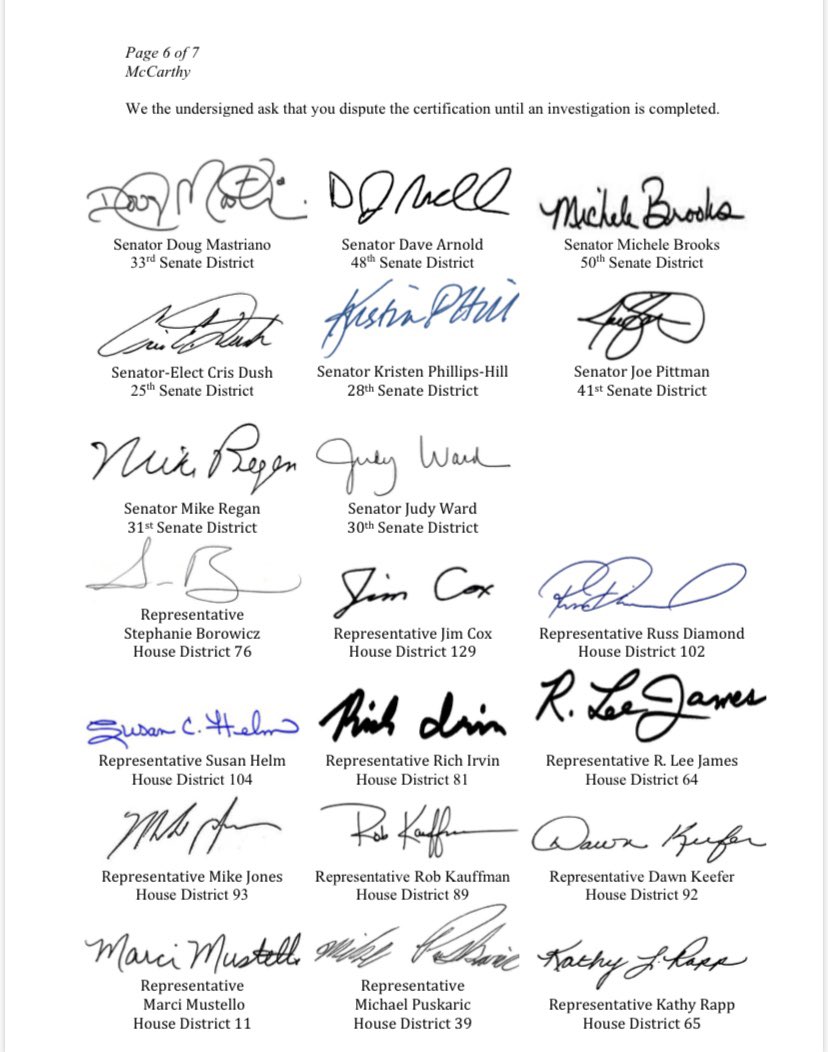 Page 6 of 7
McCarthy
We the undersigned ask that you dispute the certification until an investigation is completed.
Doug Mastriano
Michele Brooks
Senator Doug Mastriano
Senator Dave Arnold
Senator Michele Brooks
33rd Senate District
48th Senate District
50th Senate District
Cris Dush
Kristin P Hill
Senator-Elect Cris Dush
Senator Kristen Phillips-Hill
Senator Joe Pittman
25th Senate District
28th Senate District
41st Senate District
Mike Regan
Judy Ward
Senator Mike Regan
Senator Judy Ward
31st Senate District
30th Senate District
Jim Cox
Representative
Stephanie Borowicz
Representative Jim Cox
Representative Russ Diamond
House District 76
House District 129
House District 102
Susan C. Helm
Rich Irvin
R. Lee James
Representative Susan Helm
Representative Rich Irvin
Representative R. Lee James
House District 104
House District 81
House District 64
Rob Kauffman
Dawn Keefer
Representative Mike Jones
Representative Rob Kauffman
Representative Dawn Keefer
House District 93
House District 89
House District 92
Marci Mustello
Kathy L. Rapp
Representative
Marci Mustello
Representative
Michael Puskaric
Representative Kathy Rapp
House District 11
House District 39
House District 65